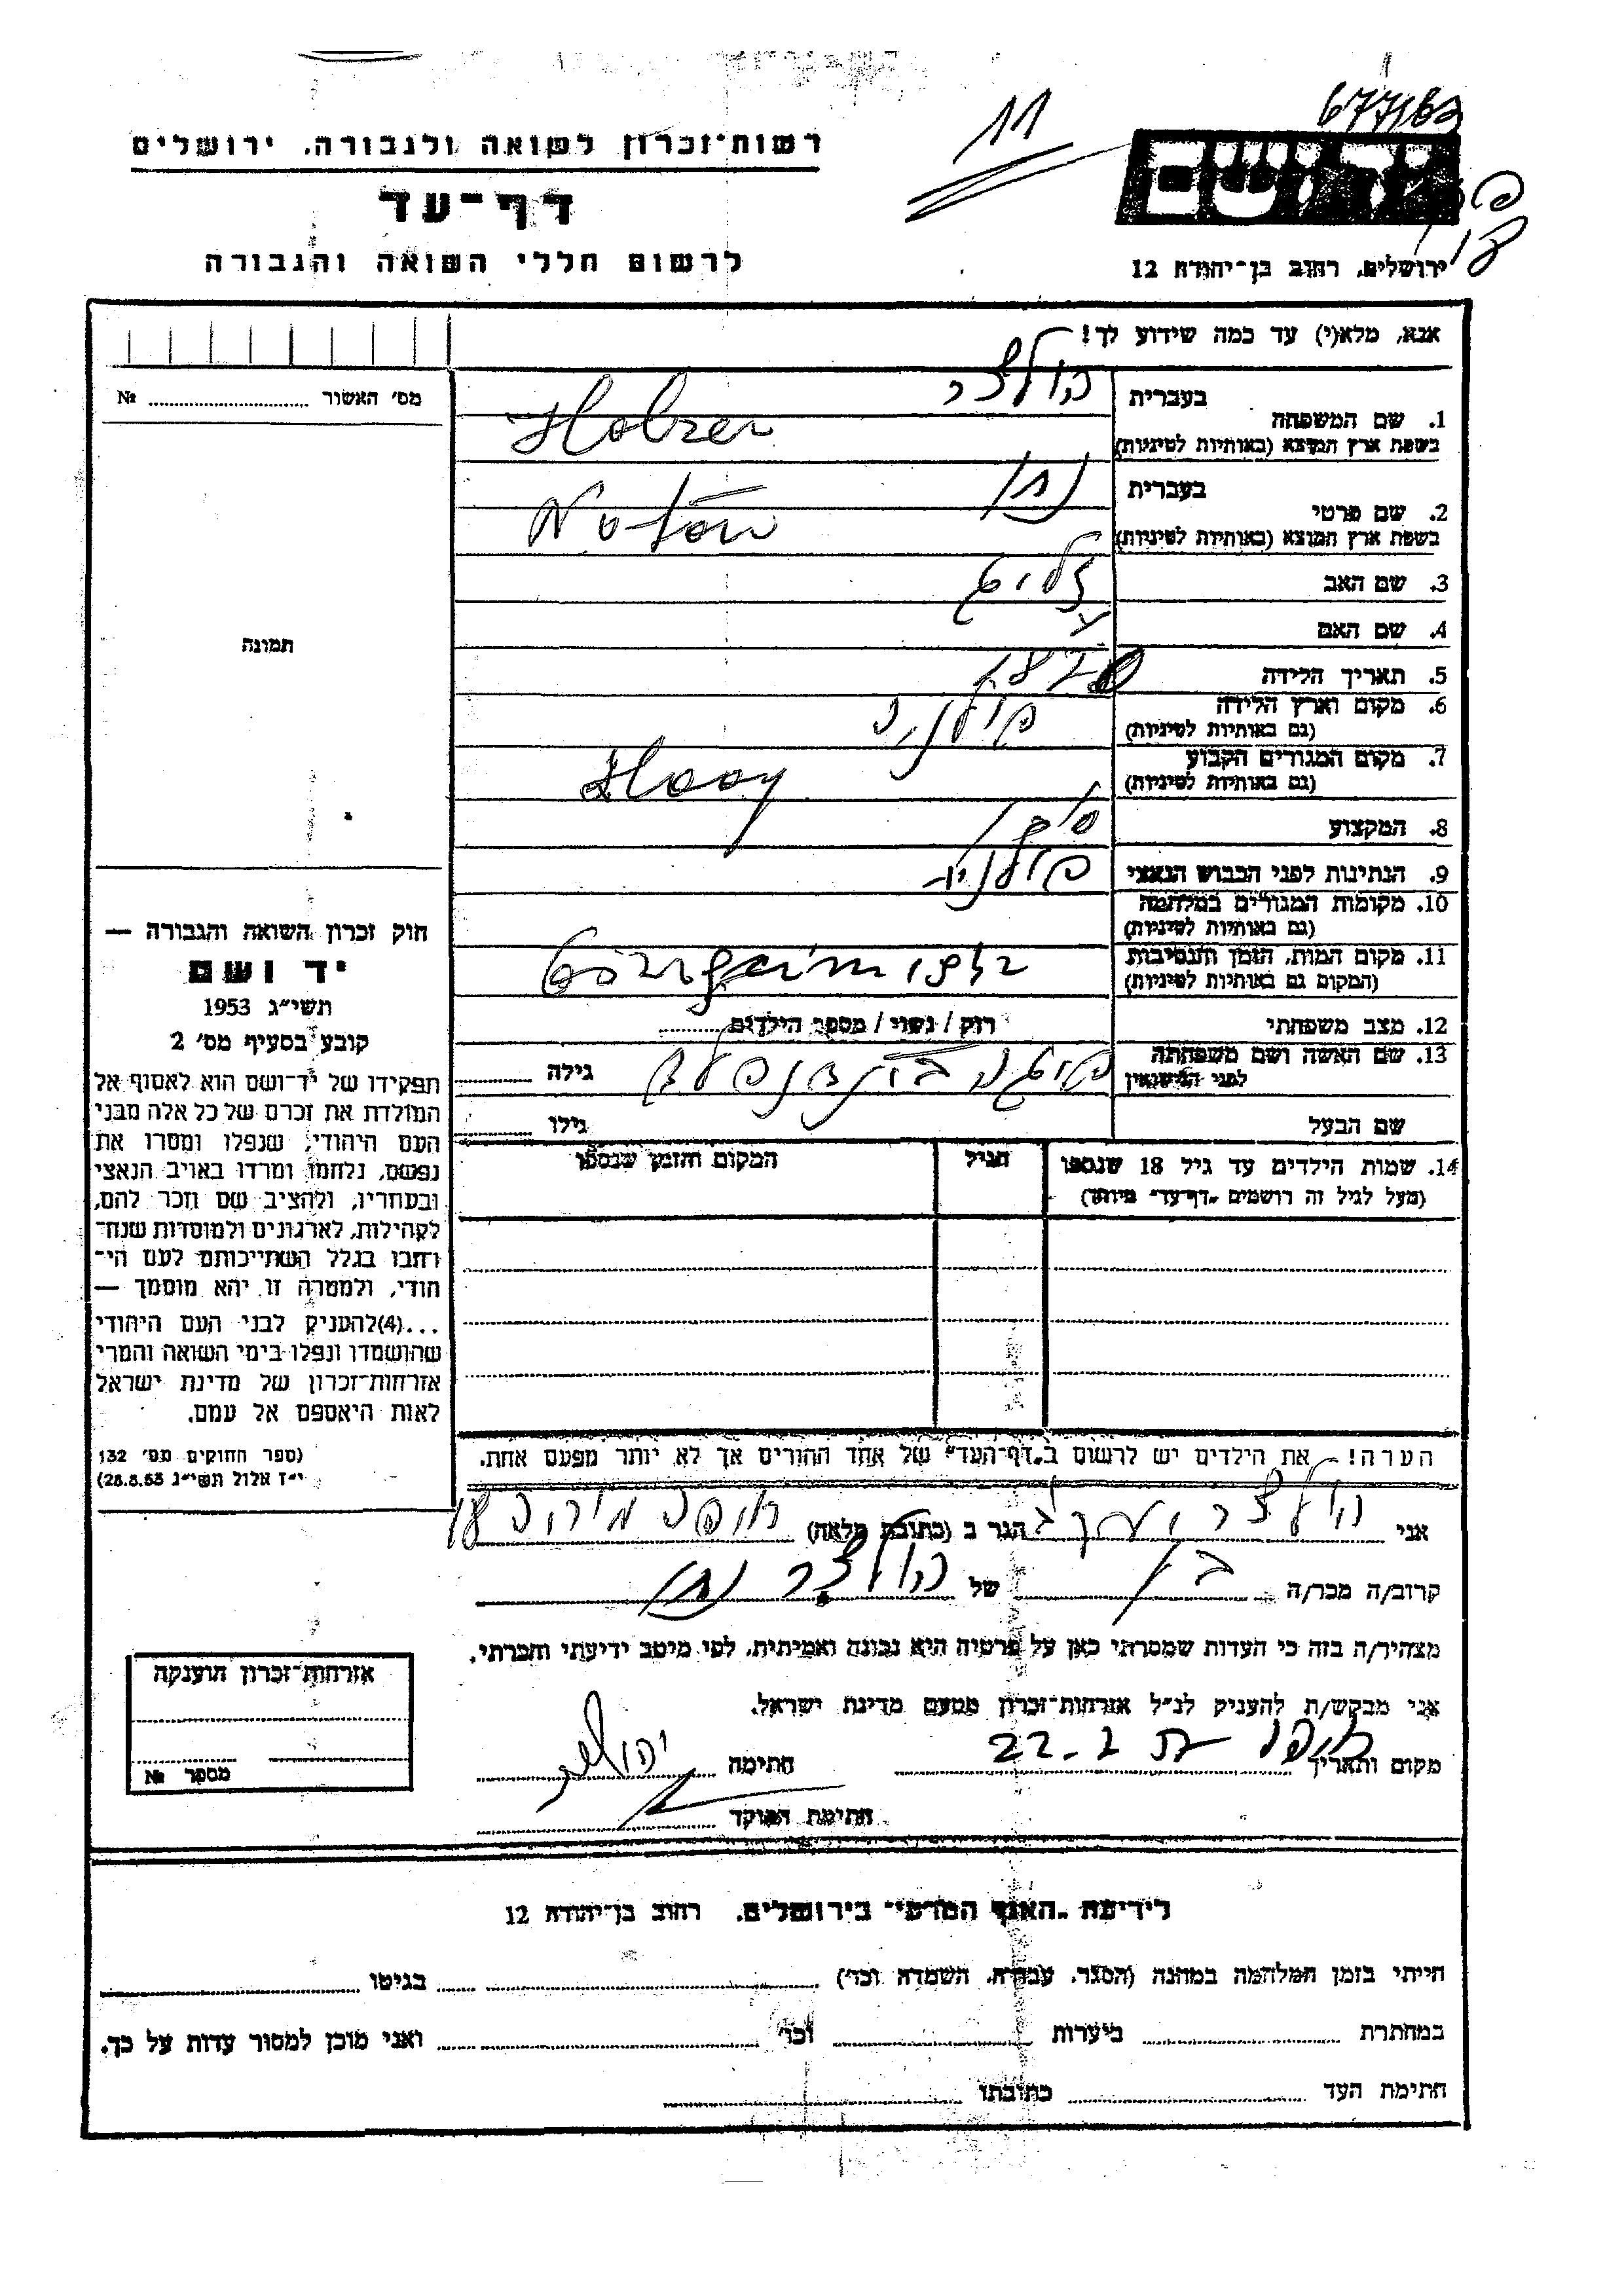 677/63
11
יד ושם
ירושלים, רחוב בן־יהודה 12
רשות־זכרון לשואה ולגבורה, ירושלים
דף־עד
לרשום חללי השואה והגבורה
אנא, מלא(י) עד כמה שידוע לך!
מס' האשור № 
1. שם המשפחה
בעברית הולצר
בשפת ארץ המוצא (באותיות לטיניות) Holzer
2. שם פרטי
בעברית נתן
בשפת ארץ המוצא (באותיות לטיניות) Notan
3. שם האב זליג
4. שם האם
5. תאריך הלידה 1870
6. מקום וארץ הלידה
(גם באותיות לטיניות) פולניה
7. מקום המגורים הקבוע
(גם באותיות לטיניות) Haag
8. המקצוע סוחר
9. הנתינות לפני הכבוש הנאצי פולנית
10. מקומות המגורים במלחמה
(גם באותיות לטיניות)
11. מקום המות, הזמן והנסיבות
(המקום גם באותיות לטיניות)
12. מצב משפחתי רוק / נשוי / מספר הילדים
13. שם האשה ושם משפחתה
לפני הנישואין
גילה
שם הבעל גילו
14. שמות הילדים עד גיל 18 שנספו
(מעל לגיל זה רושמים "דף־עד" מיוחד)
הגיל
המקום והזמן שנספו
הערה! – את הילדים יש לרשום ב"דף־העד" של אחד ההורים אך לא יותר מפעם אחת.
תמונה
חוק זכרון השואה והגבורה —
יד ושם
תשי"ג 1953
קובע בסעיף מס' 2
תפקידו של יד־ושם הוא לאסוף אל
המולדת את זכרם של כל אלה מבני
העם היהודי, שנפלו ומסרו את
נפשם, נלחמו ומרדו באויב הנאצי
ובעוזריו, ולהציב שם וזכר להם,
לקהילות, לארגונים ולמוסדות שנח־
רבו בגלל השתייכותם לעם הי־
הודי, ולמטרה זו יהא מוסמך —
...(4) להעניק לבני העם היהודי
שהושמדו ונפלו בימי השואה והמרי
אזרחות־זכרון של מדינת ישראל
לאות היאספם אל עמם.
(ספר החוקים מס' 132
י"ז אלול תשי"ג 28.8.53)
אני הולצר הגר ב (כתובת מלאה) חיפה
קרוב/ה מכר/ה בן של הולצר נתן
מצהיר/ה בזה כי העדות שמסרתי כאן על פרטיה היא נכונה ואמיתית, לפי מיטב ידיעתי והכרתי.
אני מבקש/ת להעניק לנ"ל אזרחות־זכרון מטעם מדינת ישראל.
מקום ותאריך חיפה חתימה
חתימת הפוקד
אזרחות־זכרון הוענקה
מספר №
לידיעת "האגף המדעי" בירושלים, רחוב בן־יהודה 12
הייתי בזמן המלחמה במחנה (הסגר, עבודה, השמדה וכו') בגיטו
במחתרת ביערות וכו' ואני מוכן למסור עדות על כך.
חתימת העד כתובתו